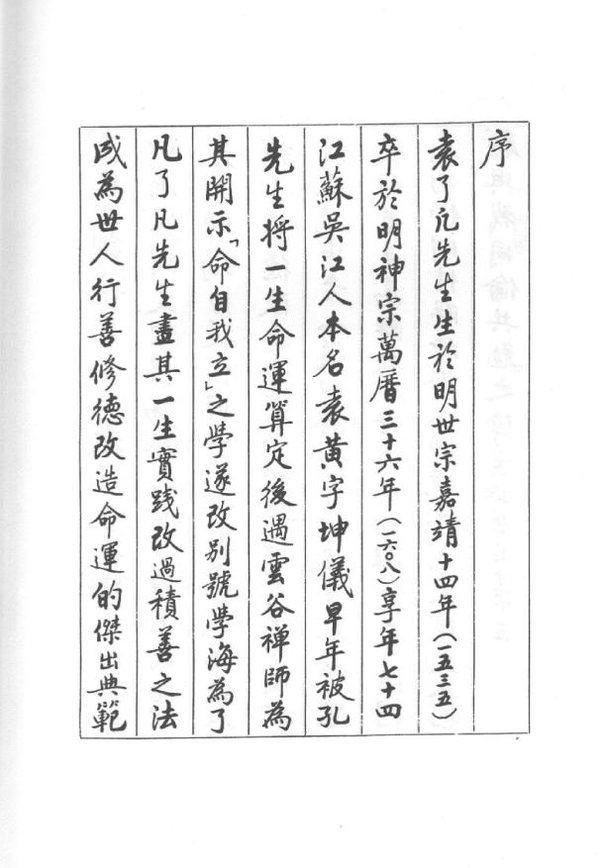 序
袁了凡先生生於明世宗嘉靖十四年(一五三五)
卒於明神宗萬曆三十六年(一六〇八)享年七十四
江蘇吳江人本名袁黃字坤儀早年被孔
先生將一生命運算定後遇雲谷禅師為
其開示「命自我立」之學遂改别號學海為了
凡了凡先生盡其一生實踐改過積善之法
成為世人行善修德改造命運的傑出典範